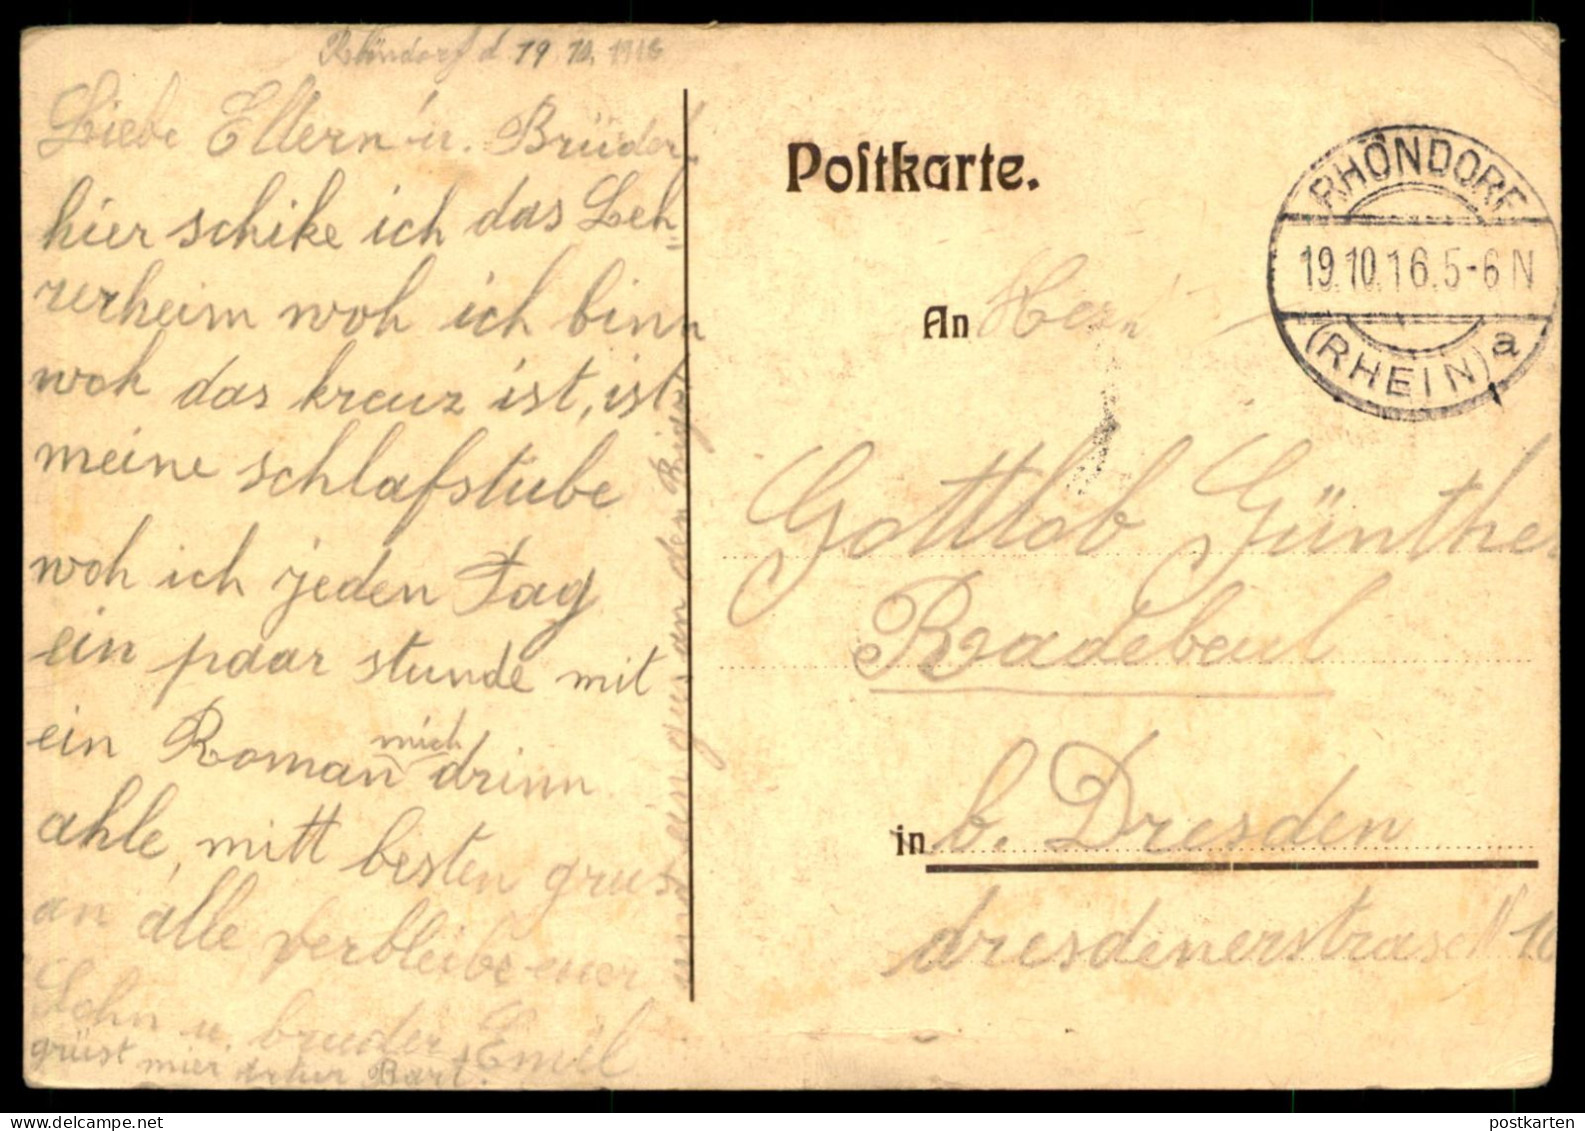 Rhöndorf d 19 10. 1916
Liebe Eltern u. Brüder.
hier schike ich das Leh-
rerheim woh ich binn
woh das kreuz ist, ist
meine schlafstube
woh ich jeden Tag
ein paar stunde mit
ein Roman mich drinn
ahle, mitt besten grus
an alle verbleibe euer
Sohn u. bruder Emil
grüst mier Bart.
an den
Postkarte.
RHÖNDORF
19.10.16.5-6N
(RHEIN) a
An Herrn
Gottlob Günther
Radebeul
in b. Dresden
dresdenerstrase
postkarten